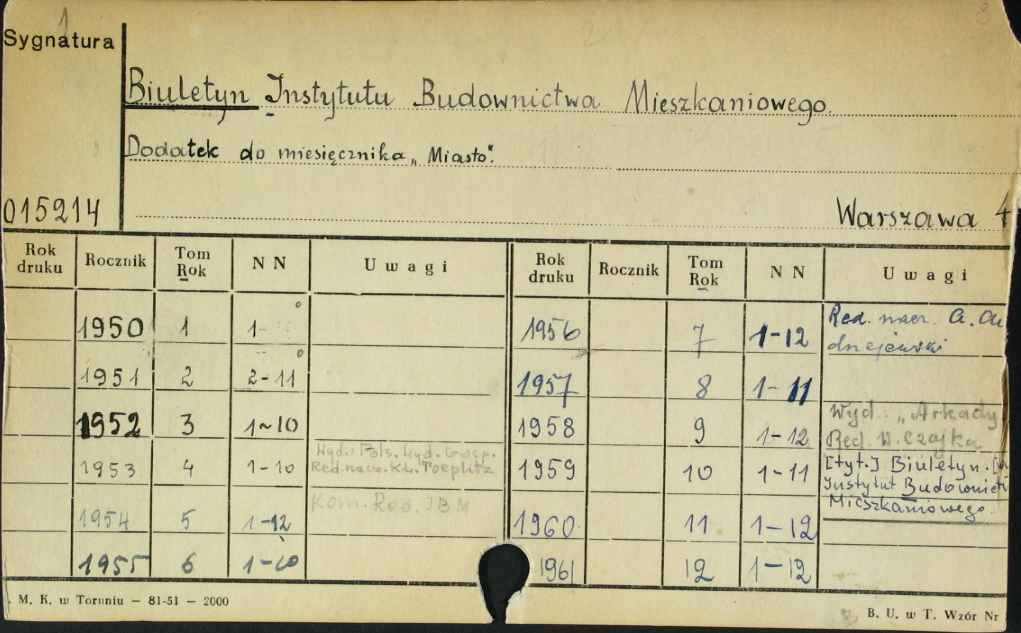 1
8
Sygnatura
Biuletyn Instytutu Budownictwa Mieszkaniowego.
Dodatek do miesięcznika „Miasto".
015214
Warszawa 4
Rok druku Rocznik Tom Rok NN Uwagi Rok druku Rocznik Tom Rok NN Uwagi
1950 1 1- 1956 7 1-12 Red. nacz. A. An
drzejewski
1951 2 2-11 1957 8 1-11
1952 3 1-10 1958 9 1-12 Wyd.: „Arkady
Red. W. Czajka
Wyd.: Pols. Wyd. Gosp.
1953 4 1-10 Red. nacz. K. Toeplitz 1959 10 1-11 [tyt.] Biuletyn.
Instytut Budownict
Kom. Red. IBM
Mieszkaniowego.
1954 5 1-12 1960 11 1-12
1955 6 1-10 1961 12 1-12
. M. K. w Toruniu – 81-51 – 2000
B. U. w T. Wzór Nr